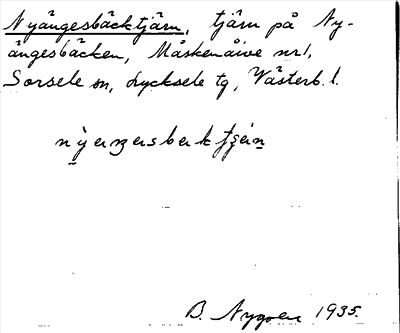 Nyängesbäcktjärn, tjärn på Ny-
ängesbäcken, Måskenåive nr 1,
Sorsele sn, Lycksele tg, Västerb. l.
B. Nygren 1935.